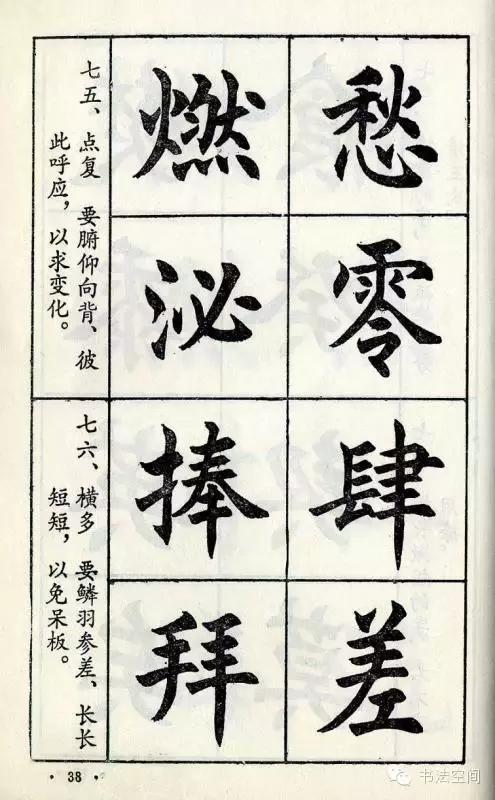 愁零
燃泌
七五、点复 要腑仰向背、彼
此呼应，以求变化。
肆差
捧拜
七六、横多 要鳞羽参差、长长
短短，以免呆板。
·38·
书法空间